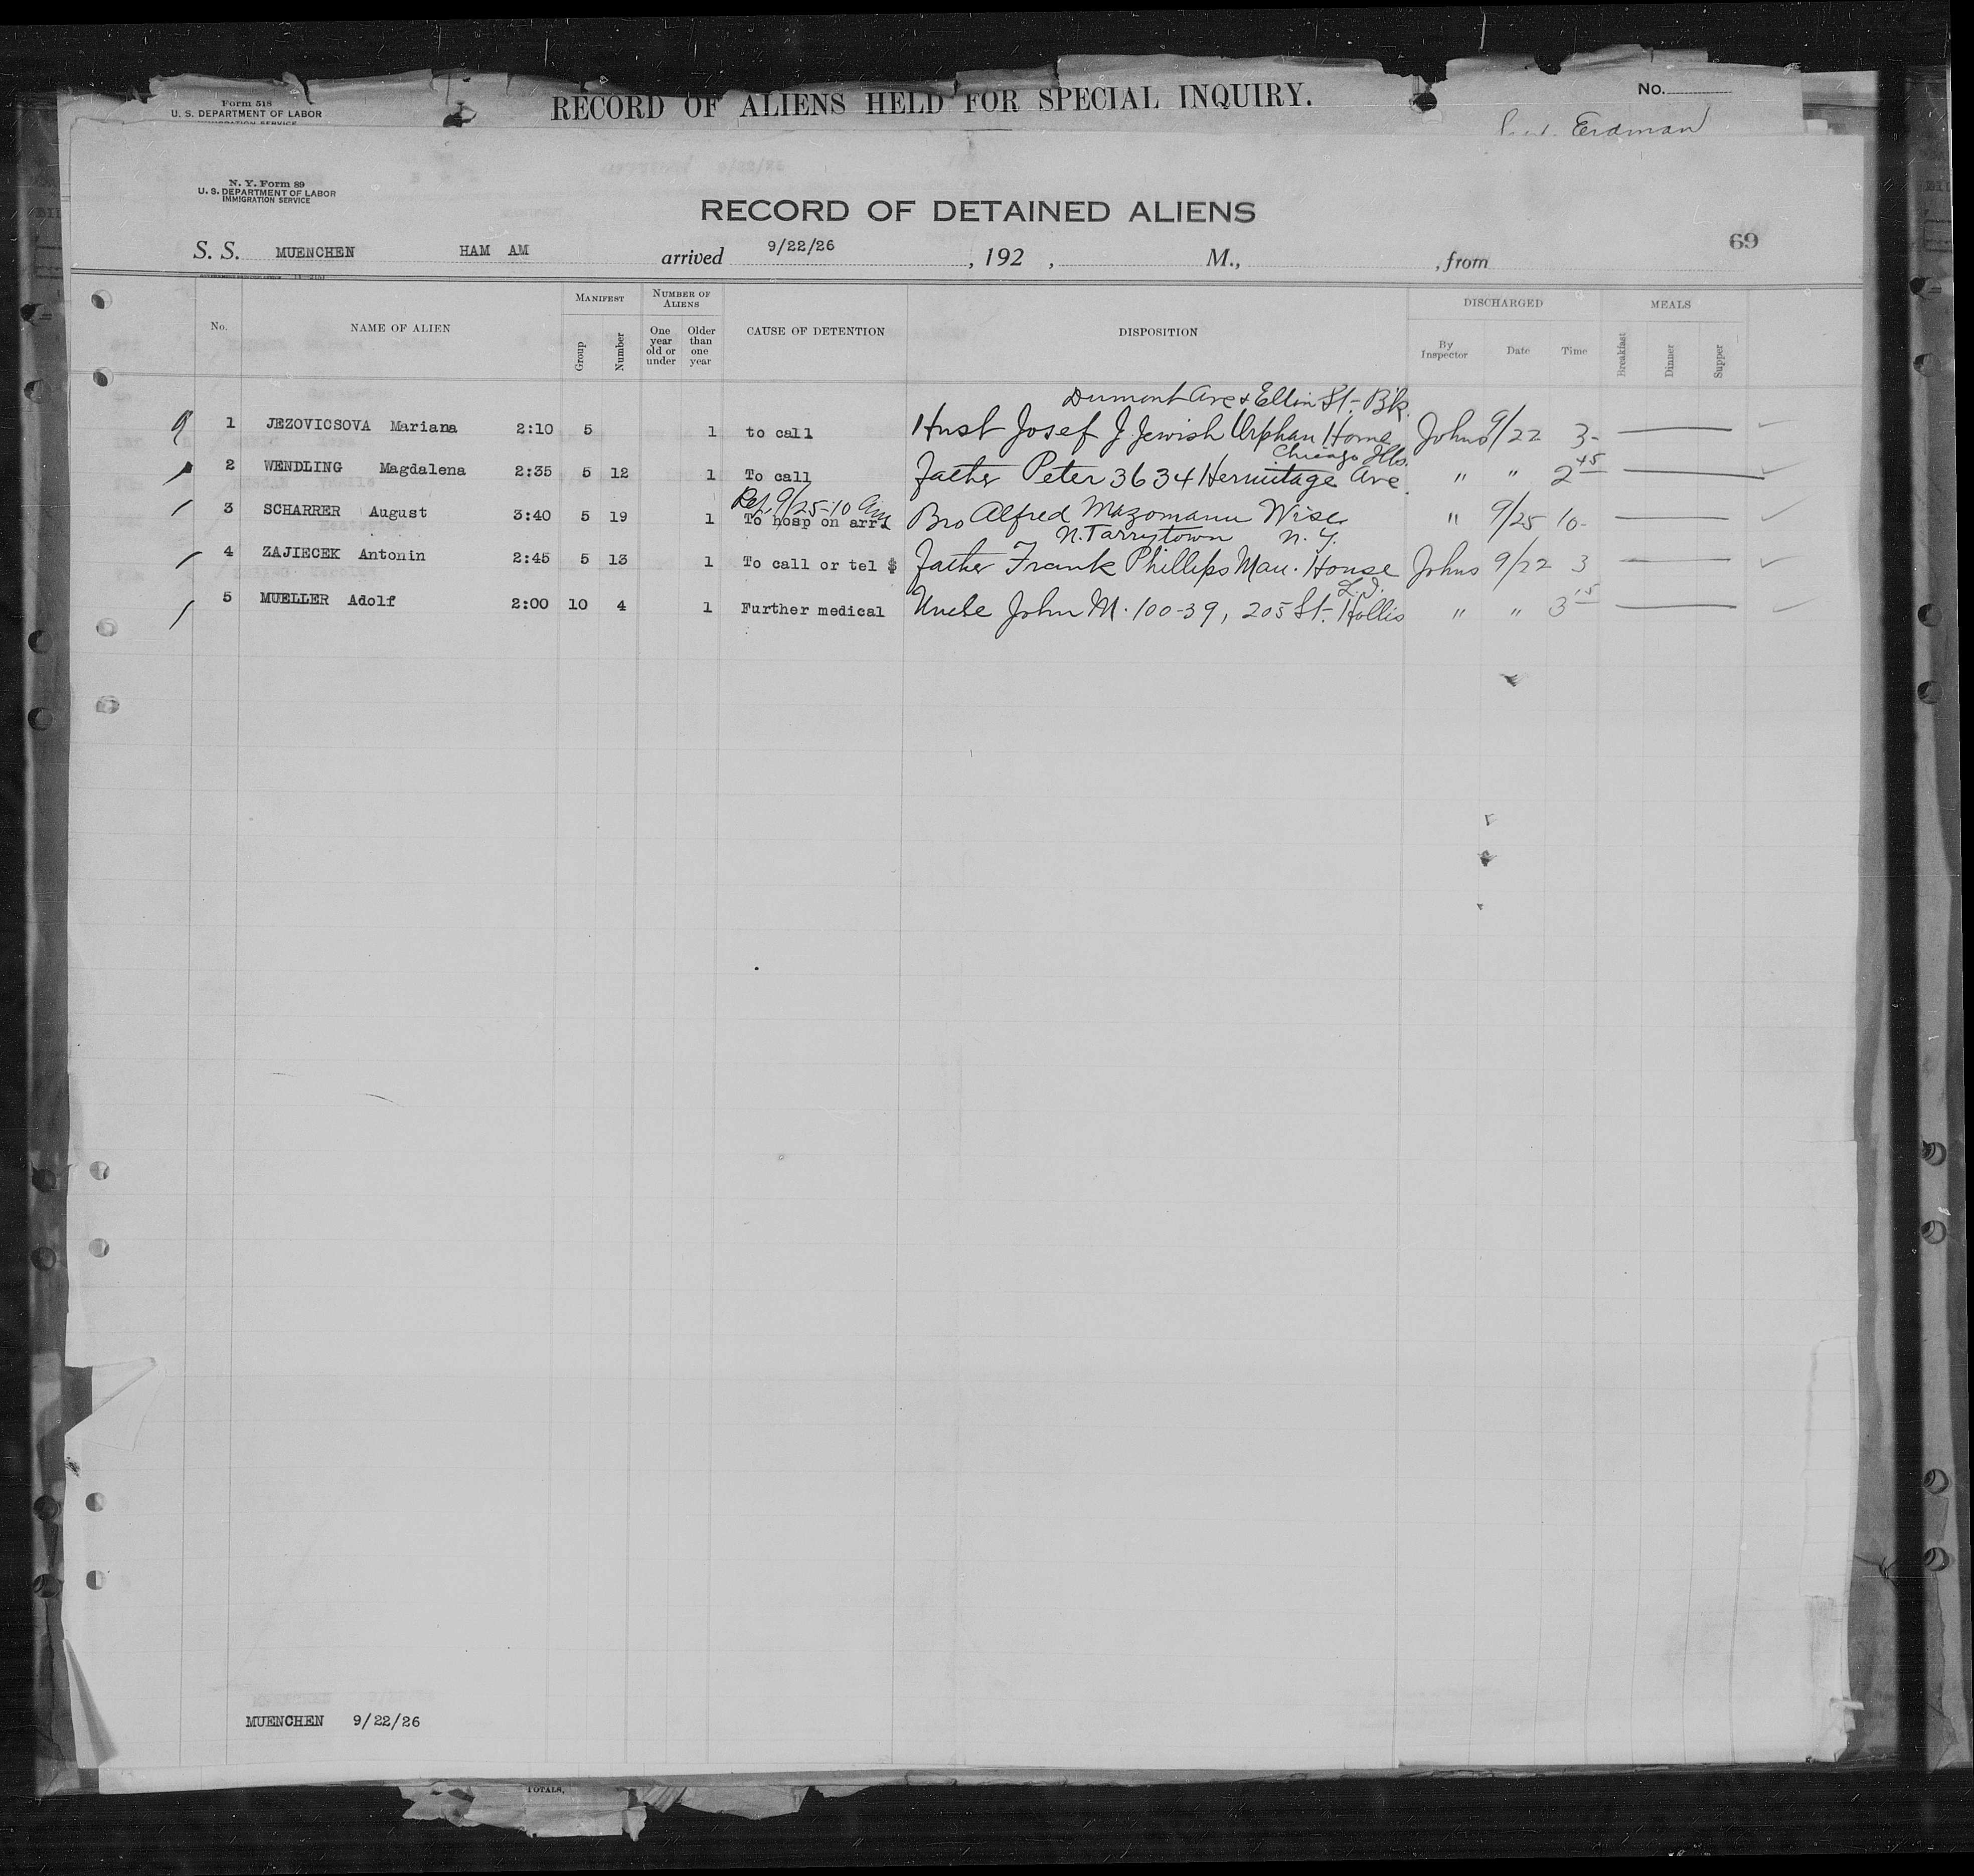 Form 518
U. S. DEPARTMENT OF LABOR
IMMIGRATION SERVICE
RECORD OF ALIENS HELD FOR SPECIAL INQUIRY.
No.
Erdman
N. Y. Form 89
U. S. DEPARTMENT OF LABOR
IMMIGRATION SERVICE
RECORD OF DETAINED ALIENS
69
S. S. MUENCHEN HAM AM arrived 9/22/26, 192 , M., , from
No. NAME OF ALIEN MANIFEST Group Number NUMBER OF ALIENS One year old or under Older than one year CAUSE OF DETENTION DISPOSITION DISCHARGED By Inspector Date Time MEALS Breakfast Dinner Supper
Dumont Ave & Elton St. - Bk.
1 JEZOVICSOVA Mariana 2:10 5 1 to call Husb Josef J. Jewish Orphan Home Johns 9/22 3-
Chicago Ills.
2 WENDLING Magdalena 2:35 5 12 1 To call Father Peter 3634 Hermitage Ave. " " 2 45
9/25-10 am
3 SCHARRER August 3:40 5 19 1 To hosp on arr'l Bro Alfred Mazomann Wisc. " 9/25 10-
N. Tarrytown N. Y.
4 ZAJIECEK Antonin 2:45 5 13 1 To call or tel $ Father Frank Phillips Man. House Johns 9/22 3
L.I.
5 MUELLER Adolf 2:00 10 4 1 Further medical Uncle John M. 100-39, 205 St. Hollis " " 3 15
MUENCHEN 9/22/26
TOTALS,